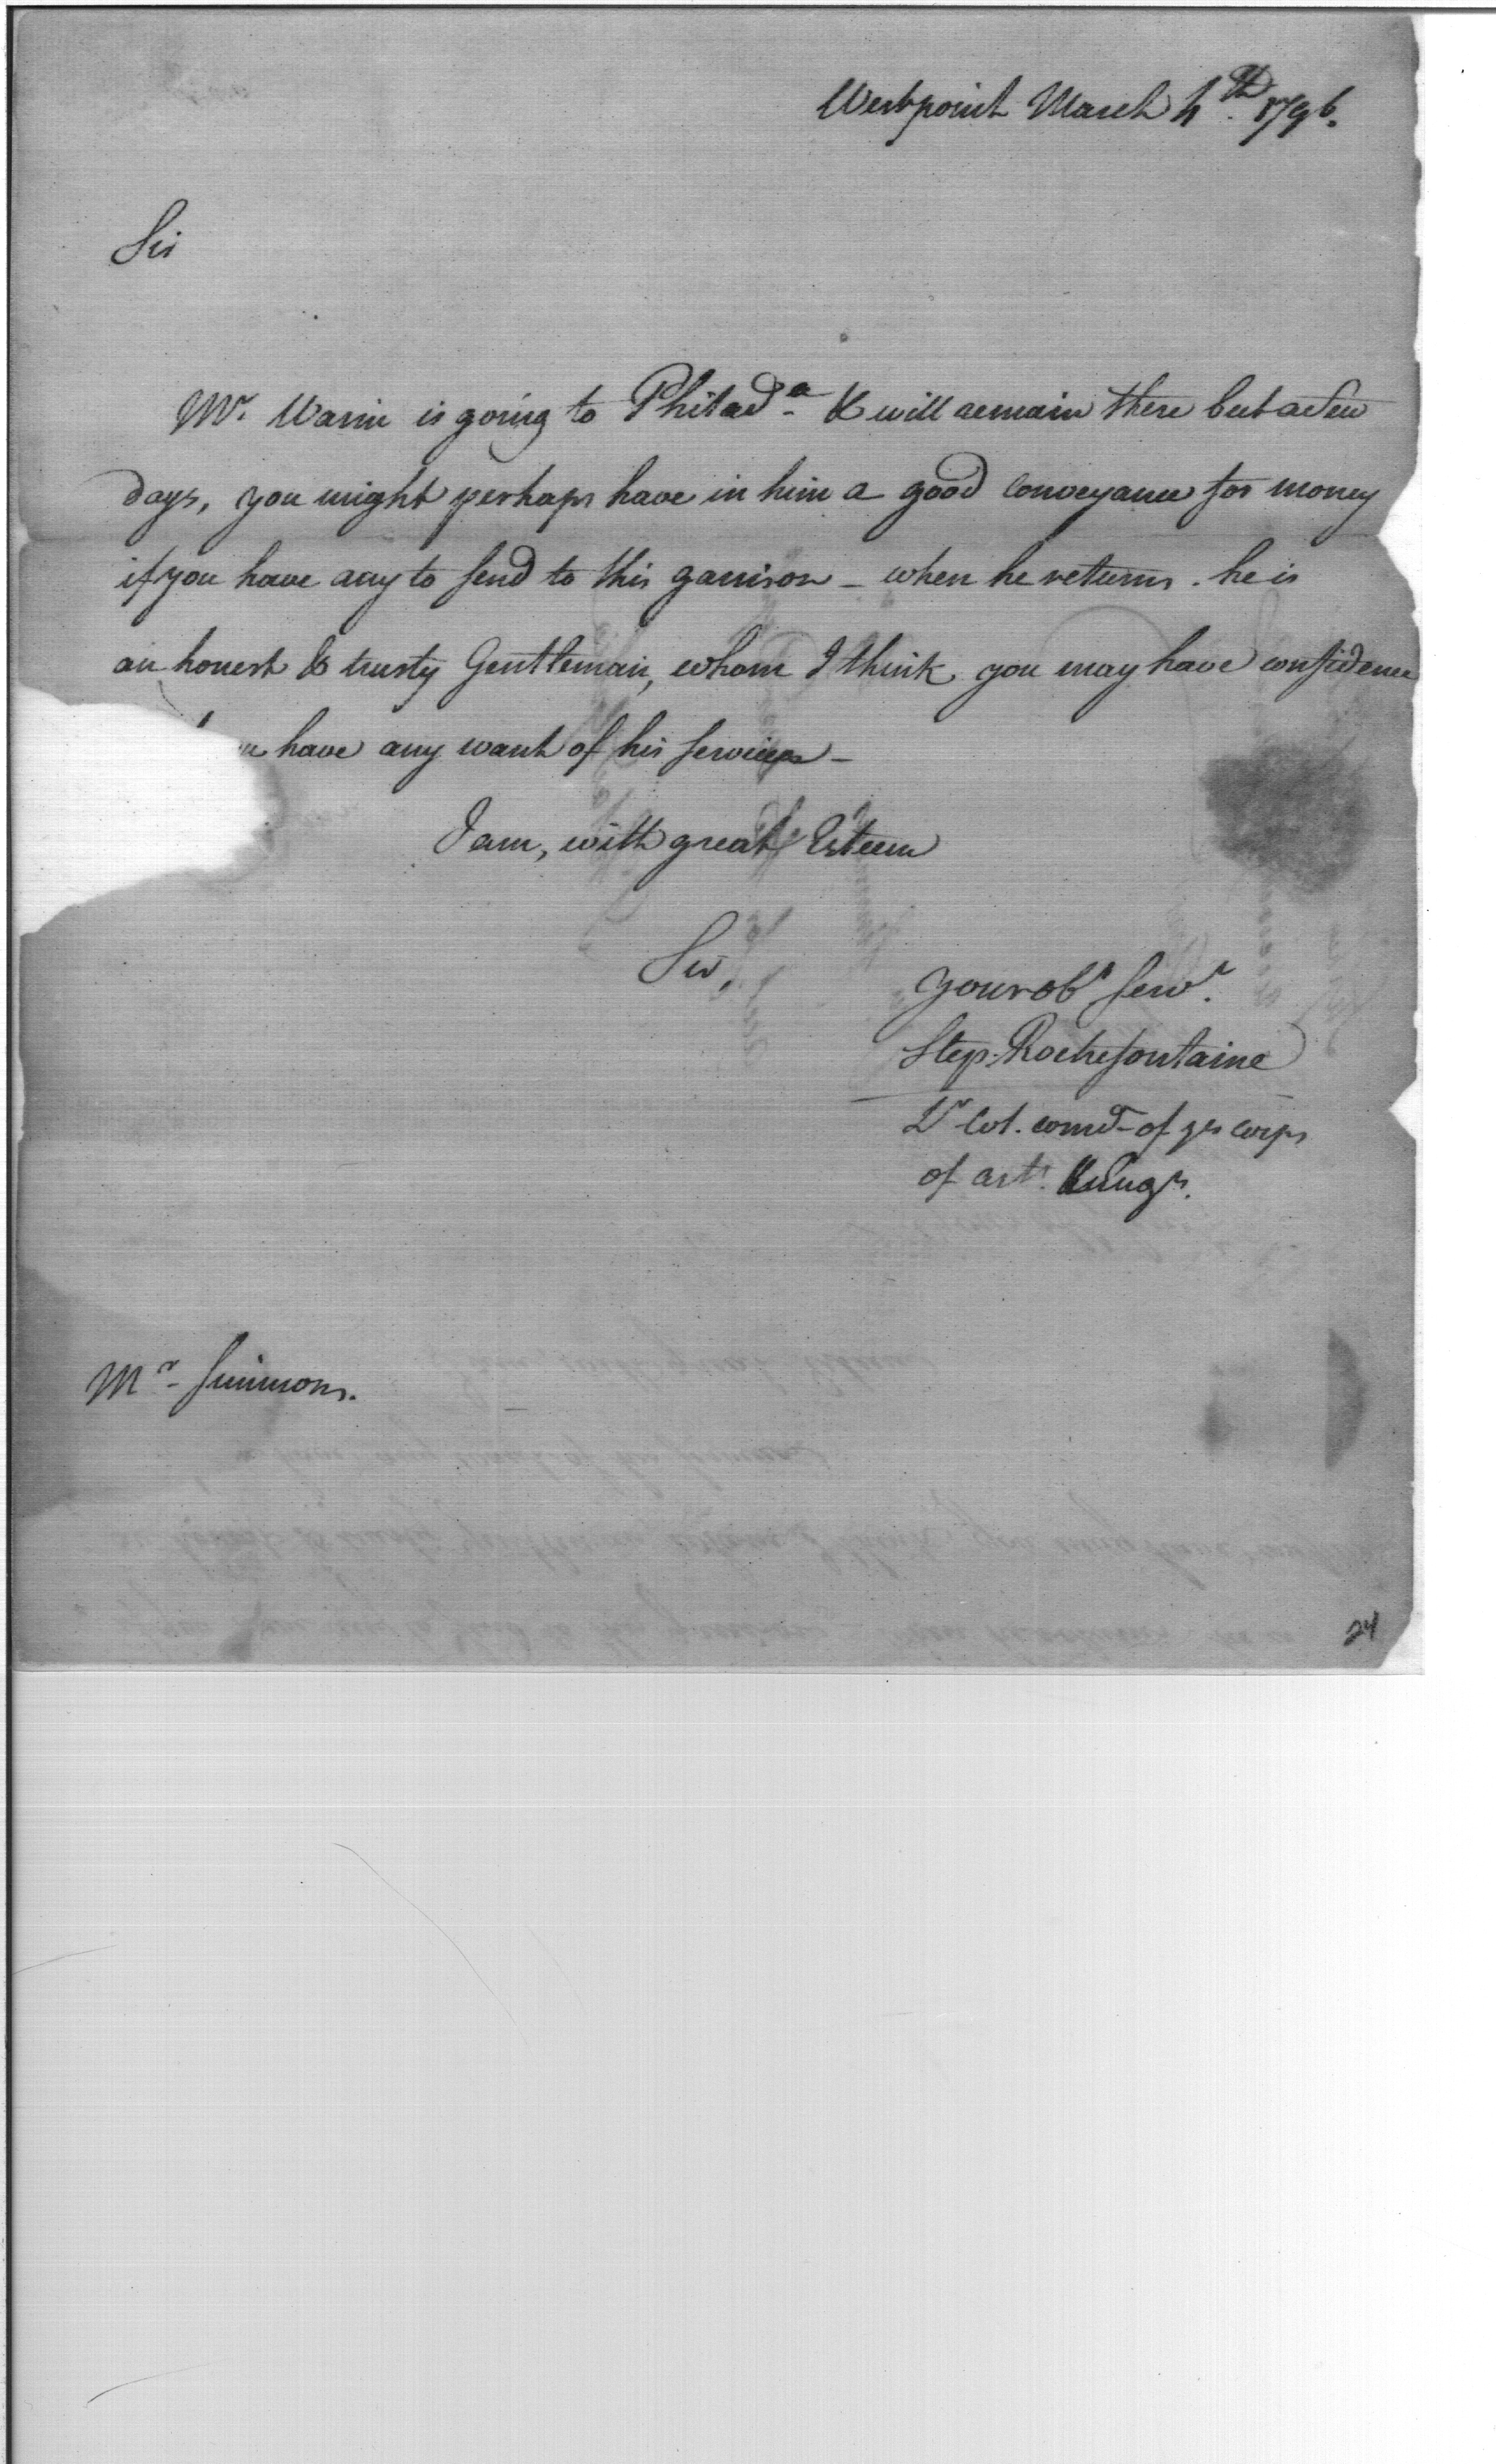 Westpoint March 4th. 1796.
Sir
Mr. Warin is going to Philada. & will remain there but a few
days, you might perhaps have in him a good conveyance for money
if you have any to send to this garrison - when he returns. he is
an honest & trusty Gentleman, whom I think you may have confidence
have any want of his services -
I am, with great Esteem
Sir,
your obt servt.
Step. Rochefontaine
Lt Col. comdt of ye corps
of art. & Engrs.
Mr. Simmons.
24